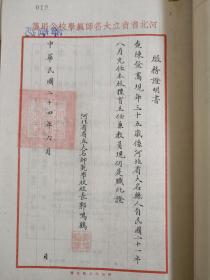 019
河北省省立大名師範學校公用箋
服務證明書
查陳發嵩現年三十五歲係河北省大名縣人自民國二十一年
八月充任本校體育主任兼教員現仍是職此證
河北省省立大名師範學校校長郭鳴鶴
中華民國二十四年八月 日